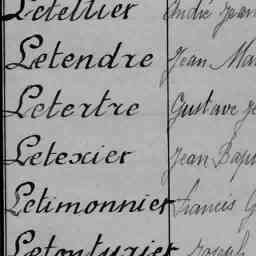 Letellier André Jean
Letendre Jean Ma
Letertre Gustave Je
Letexier Jean Bap
Letimonnier Francis G
Letouturier Joseph